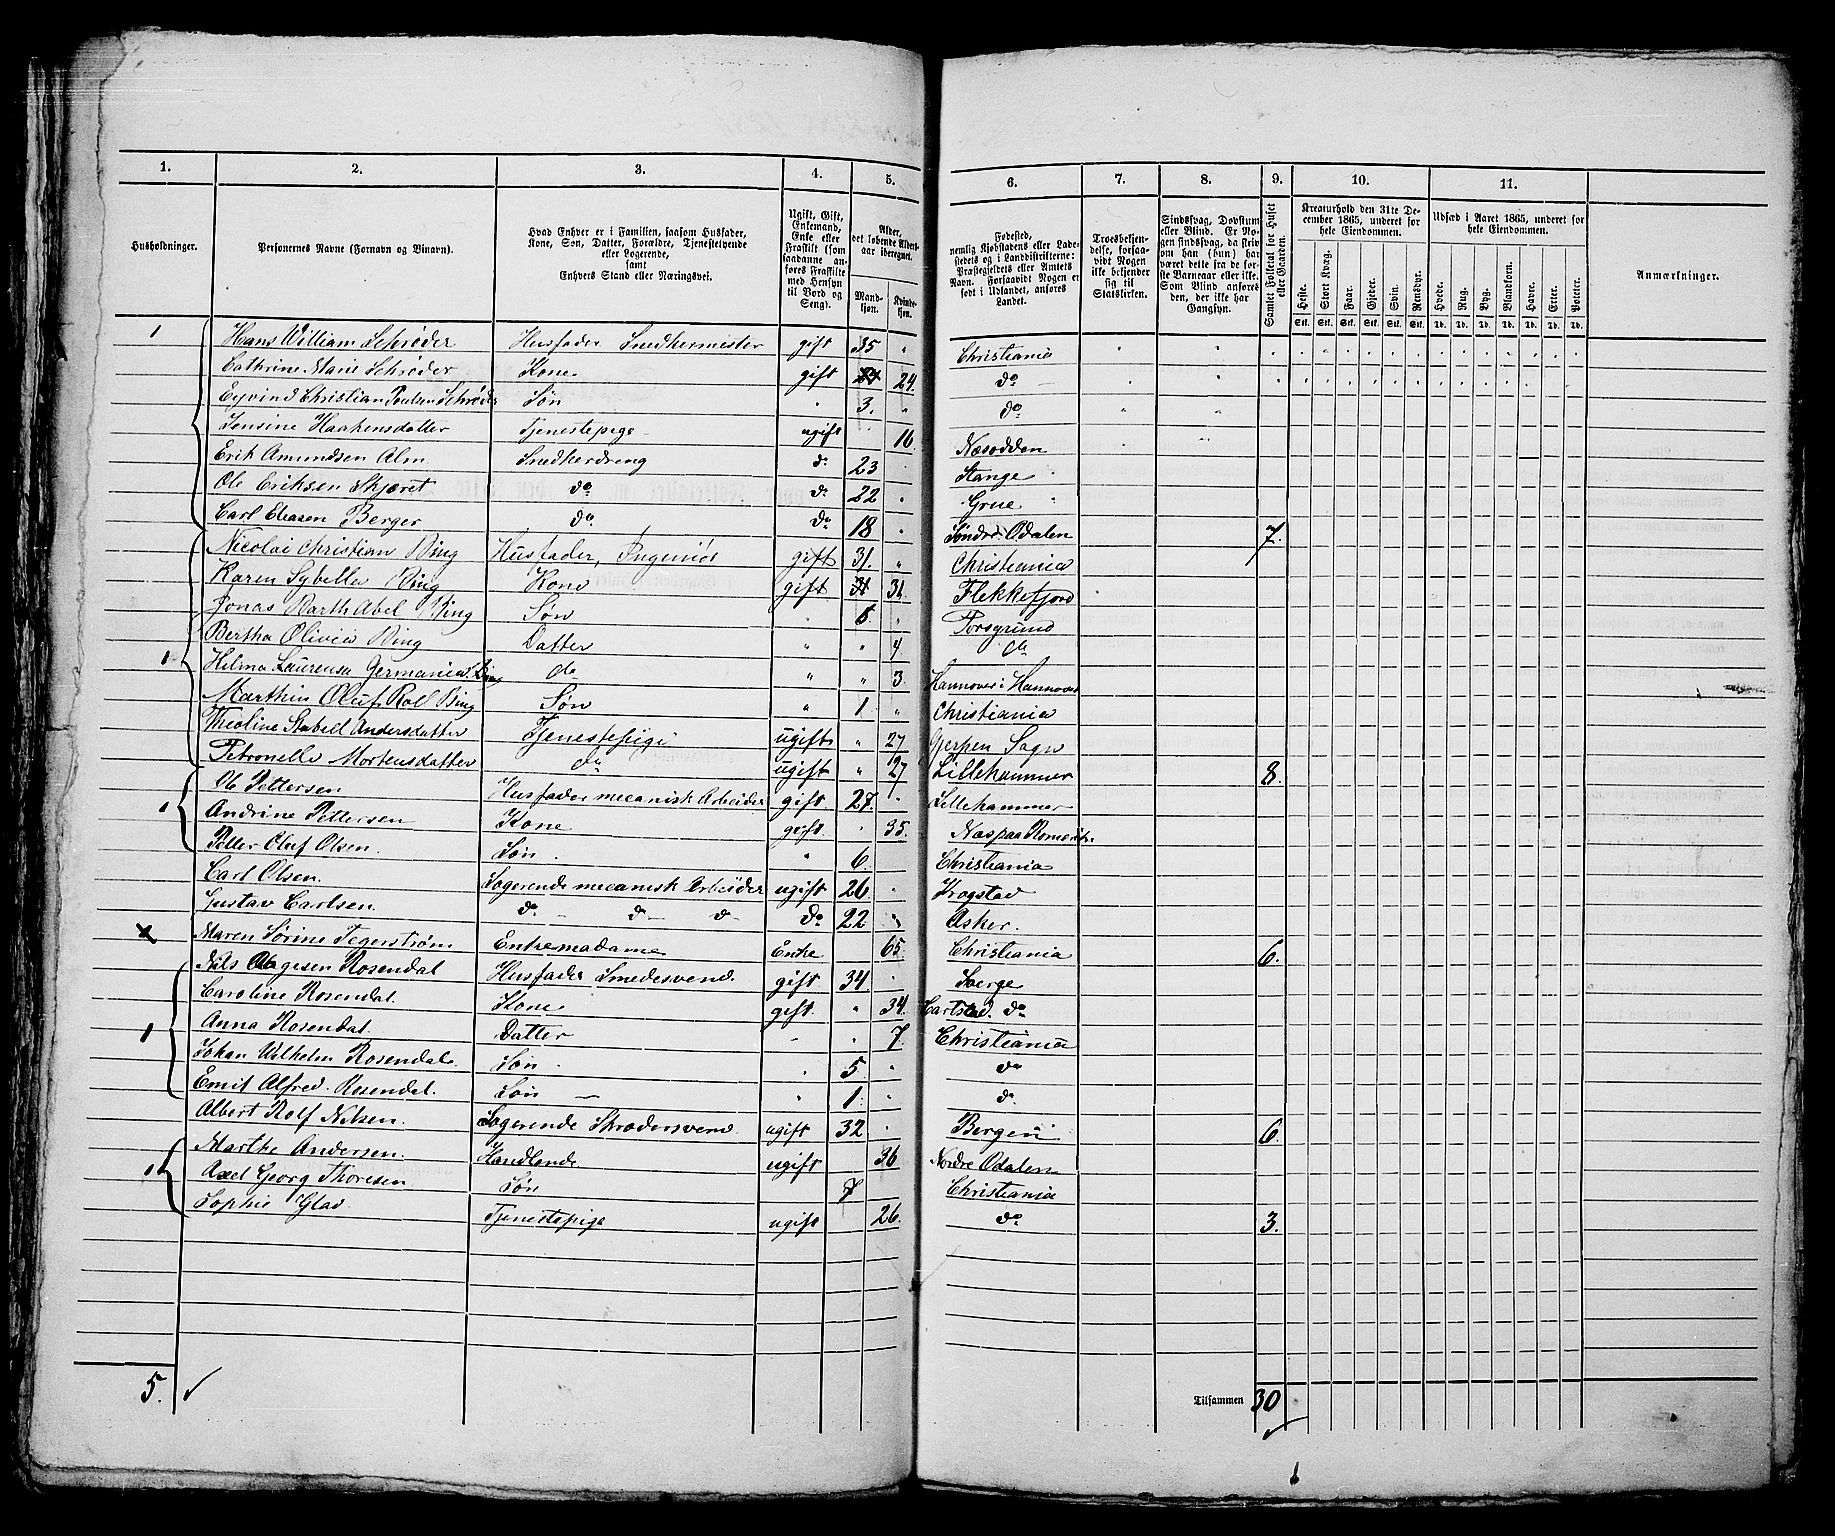 1. 2. 3. 4. 5. 6. 7. 8. 9. 10. 11.
Husholdninger.
Personernes Navne (Fornavn og Binavn).
Hvad Enhver er i Familien, saasom Husfader, Kone, Søn, Datter, Forældre, Tjenestetyende eller Logerende, samt Enhvers Stand eller Næringsvei.
Ugift, Gift, Enkemand, Enke eller Fraskilt (som saadanne anføres Fraskilte med Hensyn til Bord og Seng).
Alder, det løbende Aldersaar iberegnet.
Mandkjøn. Kvindekjøn.
Fødested, nemlig Kjøbstadens eller Ladestedets og i Landdistrikterne: Præstegjeldets eller Amtets Navn. Forsaavidt Nogen er født i Udlandet, anføres Landet.
Troesbekjendelse, forsaavidt Nogen ikke bekjender sig til Statskirken.
Sindssvag, Døvstum eller Blind. Er Nogen sindssvag, da skriv om han (hun) har været dette fra de første Barneaar eller ikke. Som Blind anføres den, der ikke har Gangsyn.
Samlet Folketal for Huset eller Gaarden.
Kreaturhold den 31te December 1865, underet for hele Eiendommen.
Heste. Stort Kvæg. Faar. Gjeder. Svin. Rensdyr.
Stk. Stk. Stk. Stk. Stk. Stk.
Udsæd i Aaret 1865, underet for hele Eiendommen.
Hvede. Rug. Byg. Blandkorn. Havre. Erter. Poteter.
Td. Td. Td. Td. Td. Td. Td.
Anmærkninger.
1 Hans William Schrøder Husfader Snedkermester gift 35 " Christiania
Cathrine Marie Schrøder Kone gift 24. do
Eyvind Christian Poulsen Schrøder Søn 3. " do
Jensine Haakensdatter Tjenestepige ugift 16 Næsodden
Erik Amundsen Alm Snedkerdreng do 23 Stange
Ole Eriksen Skjæret do do 22 Grue
Carl Eliasen Berger do do 18 Søndre Odalen 7.
Nicolai Christian Ring Husfader, Ingeniør gift 31. " Christiania
Karen Sybella Ring Kone gift 31 31. Flekkefjord
Jonas Barth Abel Ring Søn " 6 " Porsgrund
Bertha Olivia Ring Datter " " 4 do
1 Helma Laurensa Germania Ring do " " 3. Hannover i Hannover
Marthin Oluf Roll Ring Søn " 1 " Christiania
Theoline Stabell Andersdatter Tjenestepige ugift " 27 Gjerpen Sogn
Petronelle Mortensdatter do ugift " 27 Lillehammer 8.
Ole Pettersen Husfader mecanisk Arbeider gift 27. Lillehammer
1 Andrine Pettersen Kone gift 35. Næs paa Romerike
Petter Oluf Olsen. Søn. " 6 Christiania
Carl Olsen. Logerende mecanisk Arbeider ugift 26 Krogstad
Gustav Carlsen. do — do — do — do 22 " Asker.
Maren Sørine Tegerstrøm Enkemadame Enke 65. Christiania 6.
Nils Aagesen Rosendal Husfader Smedesvend. gift 34 Sverge
Caroline Rosendal. Kone gift. " 34. Carlstad do
1 Anna Rosendal. Datter 7. Christiania
Johan Wilhelm Rosendal. Søn. 5. do
Emil Alfred. Rosendal. Søn — " 1. do
Albert Rolf Nilsen. Logerende Skrædersvend. ugift 32 Bergen 6.
Marthe Andersen. Handlende ugift 36 Nordre Odalen
1 Axel Georg Thoresen Søn 7 Christiania
Sophie Glad Tjenestepige ugift 26. do 3.
5.
Tilsammen 30